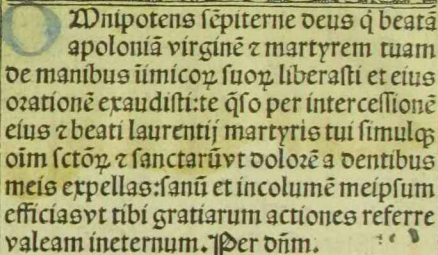 OMnipotens sẽpiterne deus q̃ beatã
apoloniã virginẽ ⁊ martyrem tuam
de manibus ĩimicoꝝ suoꝝ liberasti et eius
orationẽ exaudisti:te q̃so per intercessionẽ
eius ⁊ beati laurentij martyris tui simulqꝫ
oĩm sctõꝝ ⁊ sanctarũvt dolorẽ a dentibus
meis expellas:sanũ et incolumẽ meipsum
efficiasvt tibi gratiarum actiones referre
valeam ineternum. Per dñm.